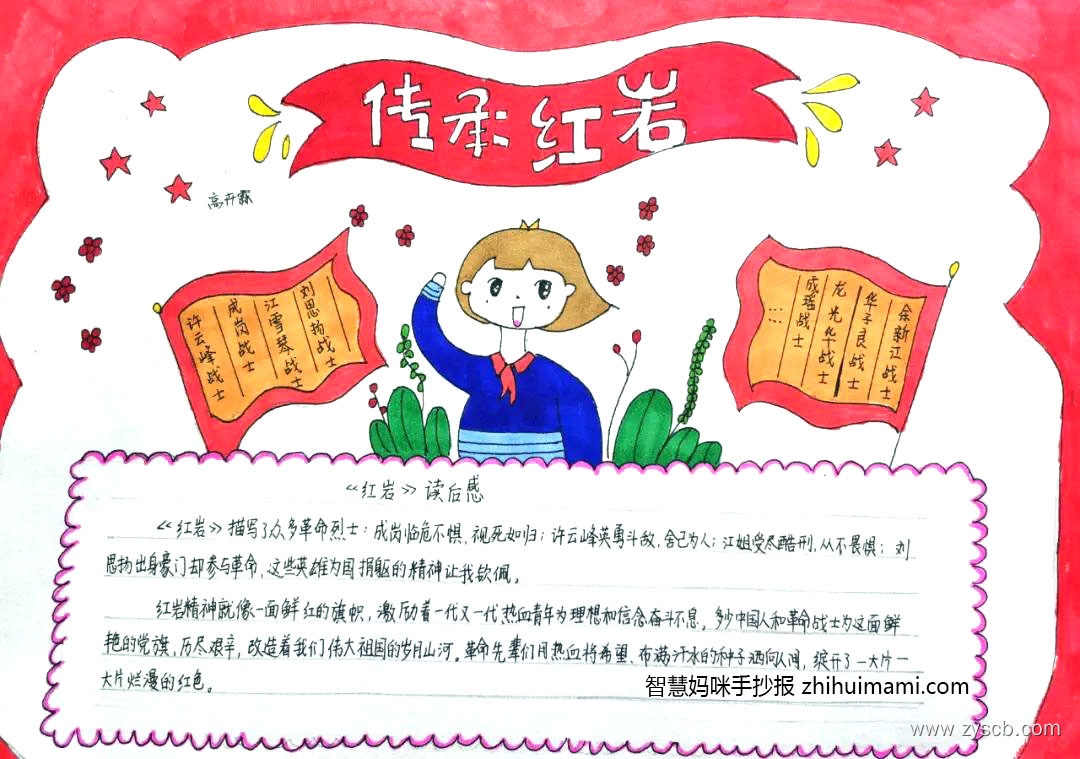 传承红岩
高卉霖
刘思扬战士
江雪琴战士
成岗战士
许云峰战士
余新江战士
华子良战士
龙光华战士
成瑶战士
……
《红岩》读后感
《红岩》描写了众多革命烈士：成岗临危不惧，视死如归；许云峰英勇斗敌，舍己为人；江姐受尽酷刑，从不畏惧；刘
思扬出身豪门却参与革命，这些英雄为国捐躯的精神让我钦佩。
红岩精神就像一面鲜红的旗帜，激励着一代又一代热血青年为理想和信念奋斗不息。多少中国人和革命战士为这面鲜
艳的党旗，历尽艰辛，改造着我们伟大祖国的岁月山河。革命先辈们用热血将希望、布满汗水的种子洒向人间，绽开了一大片一
大片烂漫的红色。
智慧妈咪手抄报 zhihuimami.com
www.zyscb.com